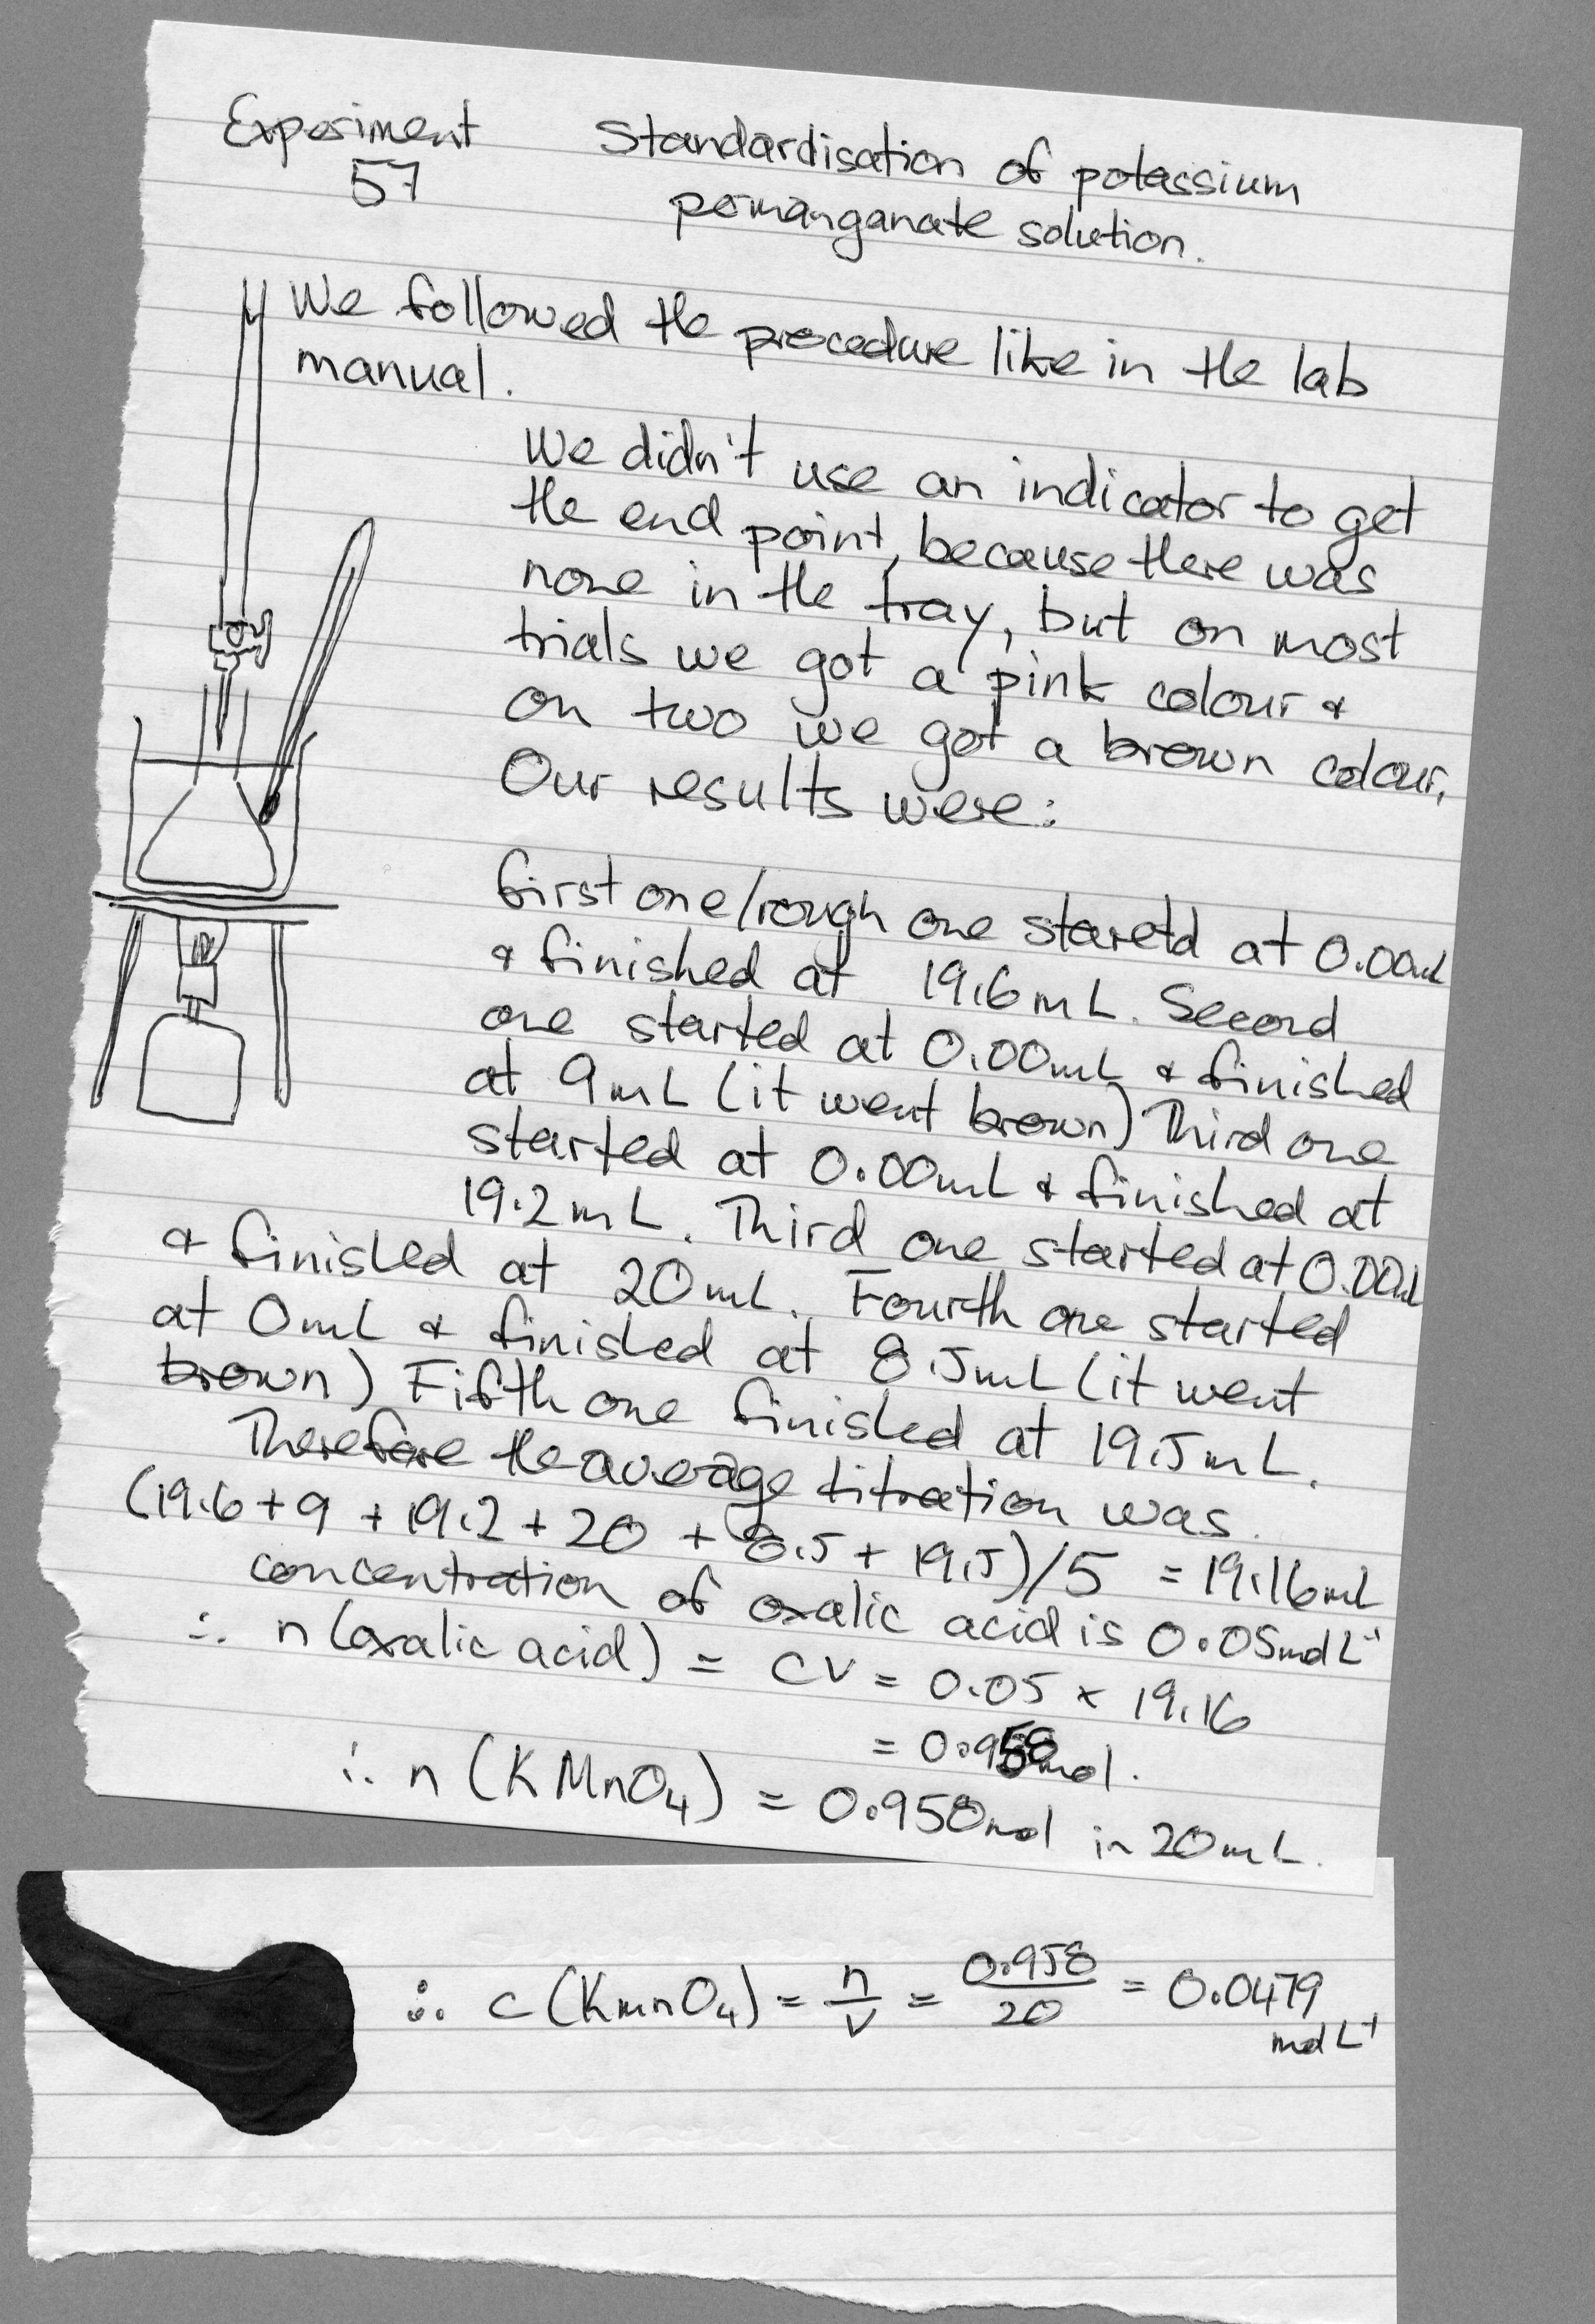 Experiment
57
Standardisation of potassium
permanganate solution.
We followed the procedure like in the lab
manual.
We didn't use an indicator to get
the end point, because there was
none in the tray, but on most
trials we got a pink colour &
on two we got a brown colour.
Our results were:
first one/rough one staretd at 0.00mL
& finished at 19.6mL. Second
one started at 0.00mL & finished
at 9mL (it went brown) Third one
started at 0.00mL & finished at
19.2mL. Third one started at 0.00mL
& finished at 20mL. Fourth one started
at 0mL & finished at 8.5mL (it went
brown) Fifth one finished at 19.5mL.
Therefore the average titration was
(19.6+9+19.2+20+8.5+19.5)/5 = 19.16mL
concentration of oxalic acid is 0.05molL⁻¹
∴ n(oxalic acid) = CV = 0.05 × 19.16
= 0.958mol.
∴ n(KMnO₄) = 0.958mol in 20mL.
∴ c(KmnO₄) = n/V = 0.958/20 = 0.0479
molL⁻¹